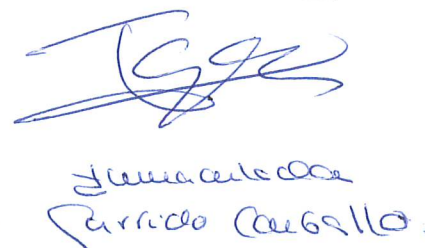 Inmaculada
Garrido Carballo